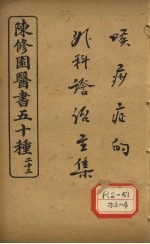 陳修園醫書五十種 二十三
喉痧症的
外科證治全集
R2-51
73-4